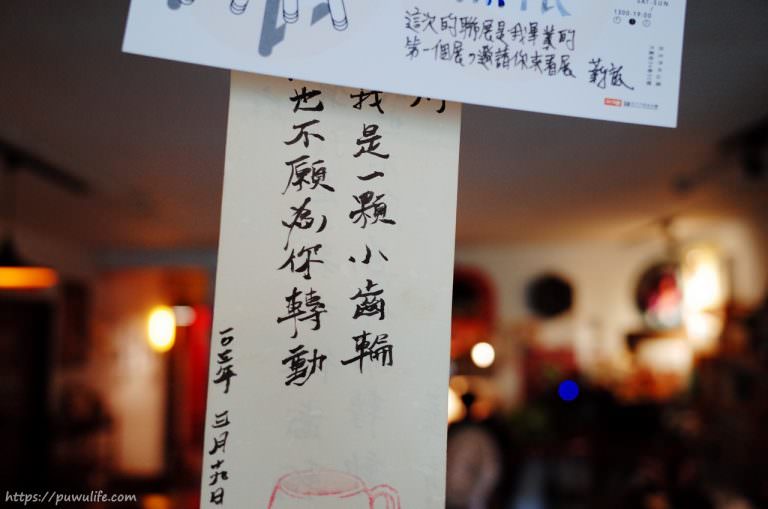 SAT-SUN
1300-19:00
這次的聯展是我畢業的
第一個展,邀請你來看展
我是一顆小齒輪
也不願為你轉動
一〇三年 三月
https://puwulife.com